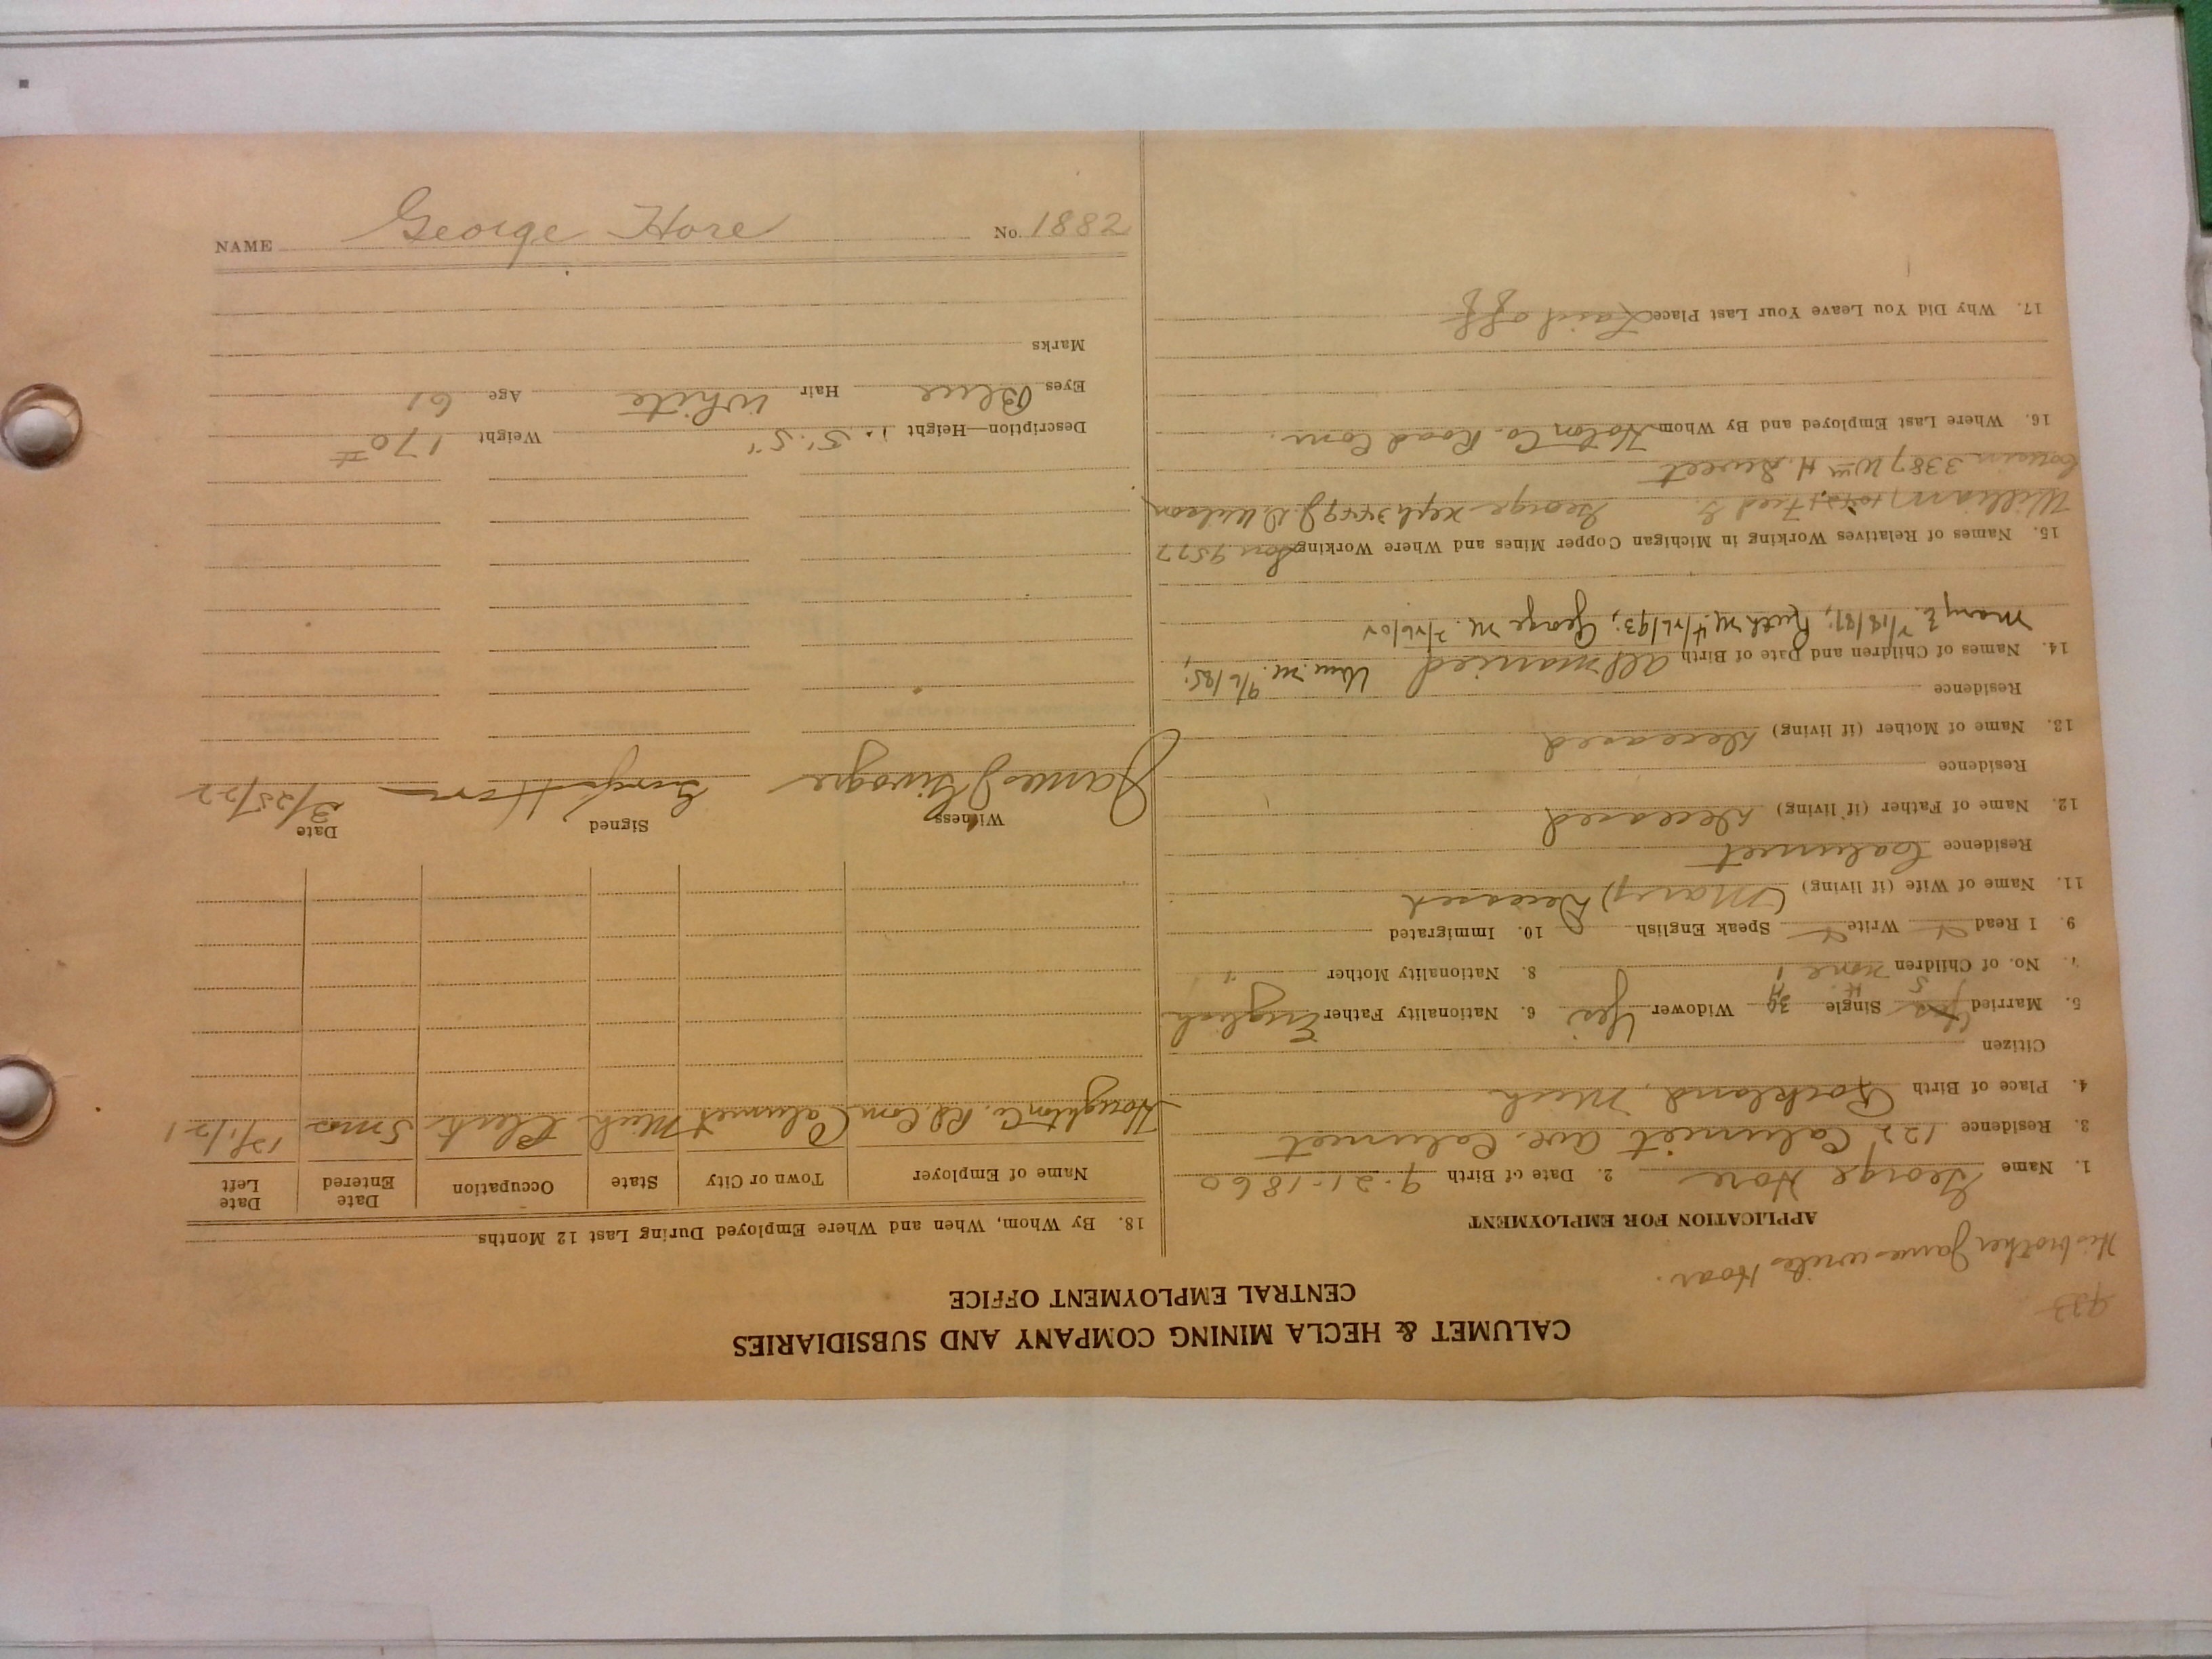 933
His brother James writes Hoar.
CALUMET & HECLA MINING COMPANY AND SUBSIDIARIES
CENTRAL EMPLOYMENT OFFICE
APPLICATION FOR EMPLOYMENT
1. Name George Hore 2. Date of Birth 9-21-1860
3. Residence 122 Calumet Ave. Calumet
4. Place of Birth Rockland, Mich
Citizen
5. Married Yes Single Widower Yes 6. Nationality Father English
7. No. of Children none 8. Nationality Mother "
9. I Read Write Speak English 10. Immigrated
11. Name of Wife (if living) (Mary) Deceased
Residence Calumet
12. Name of Father (if living) Deceased
Residence
13. Name of Mother (if living) Deceased
Residence
14. Names of Children and Date of Birth all married Wm. M. 9/6/85;
Mary E. 7/18/87; Ruth M. 4/26/93; George M. 2/26/02
15. Names of Relatives Working in Michigan Copper Mines and Where Working Son 9577
William Fred G. George 3449 J.D.
Cousin 3387 Wm H. Sweet
16. Where Last Employed and By Whom Hoton Co. Road Com.
17. Why Did You Leave Your Last Place Laid off
18. By Whom, When and Where Employed During Last 12 Months
Name of Employer Town or City State Occupation Date Entered Date Left
Houghton Co. Rd. Com Calumet Mich Clerk 5 mos 12/1/21
Witness Signed Date
James J George Hore 3/25/22
Description—Height 5'.5" Weight 170 #
Eyes Blue Hair White Age 61
Marks
NAME George Hore No. 1882